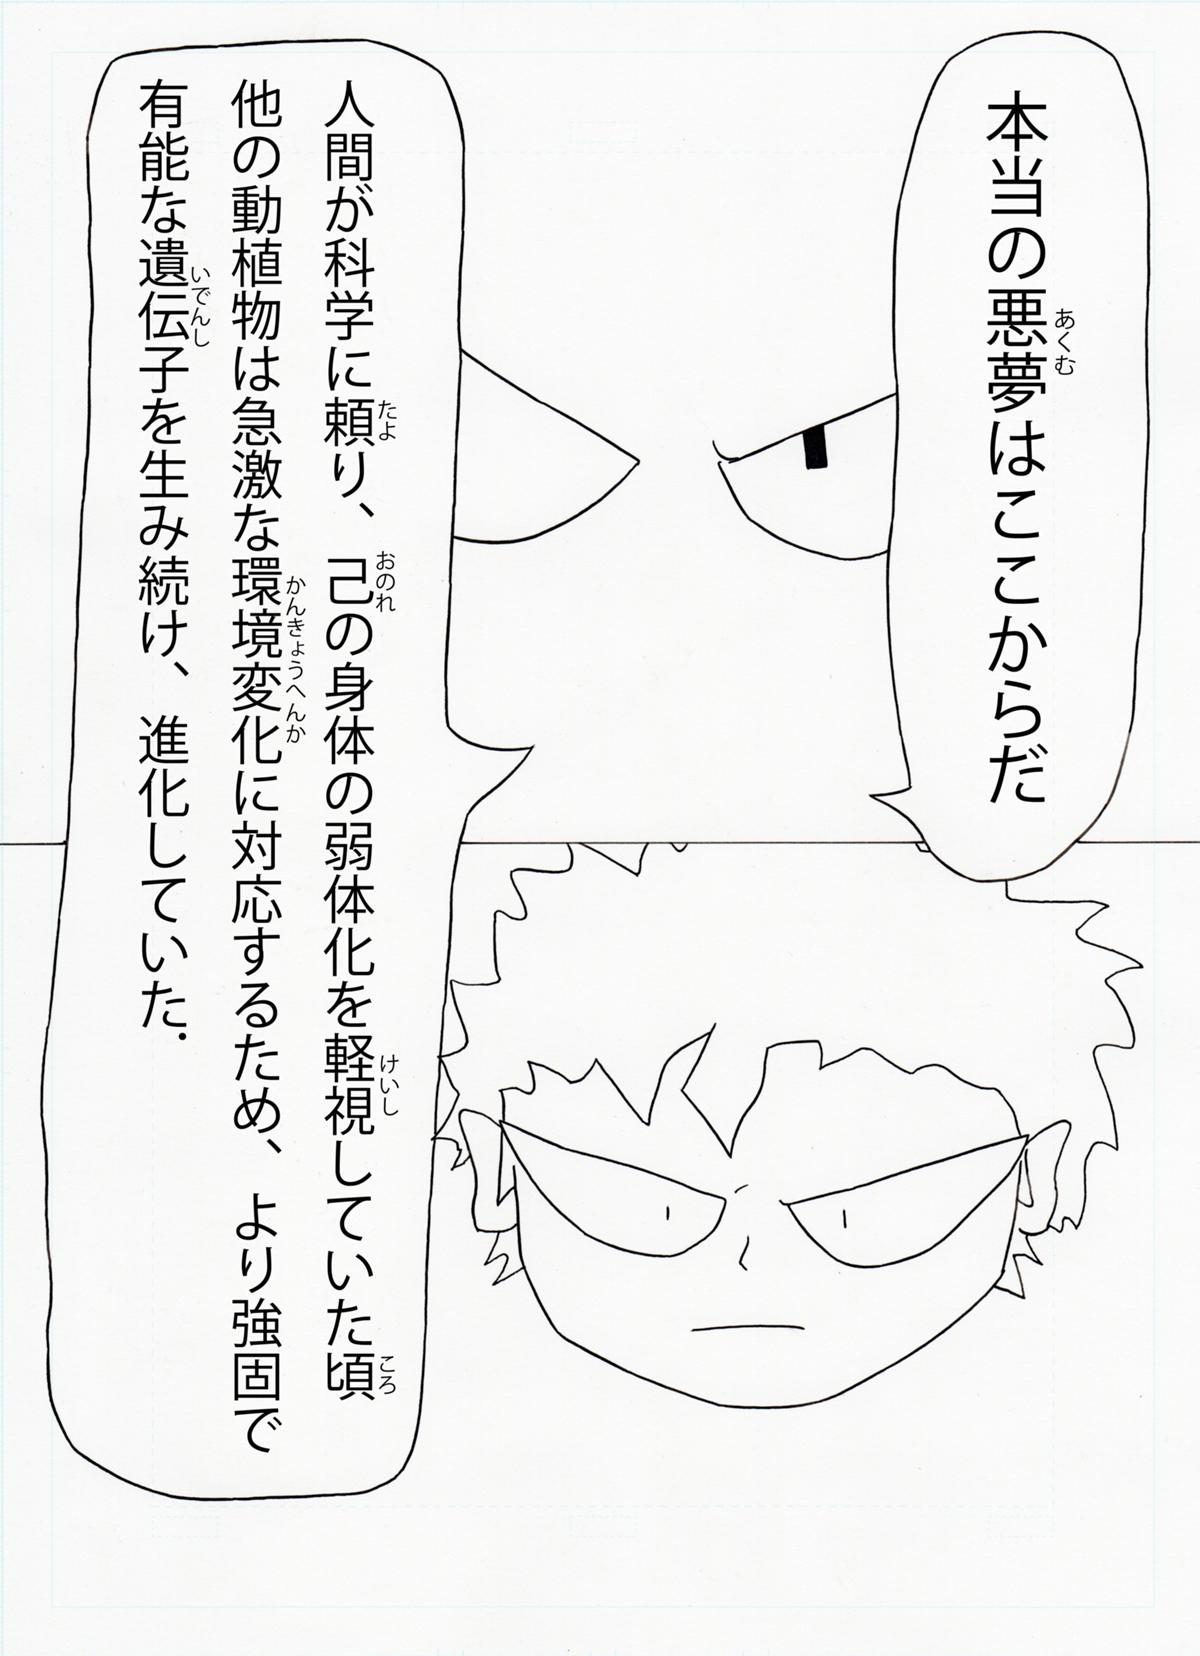 本当の悪夢はここからだ
あくむ
人間が科学に頼り、己の身体の弱体化を軽視していた頃
たよ
おのれ
けいし
ころ
他の動植物は急激な環境変化に対応するため、より強固で
かんきょうへんか
有能な遺伝子を生み続け、進化していた.
いでんし